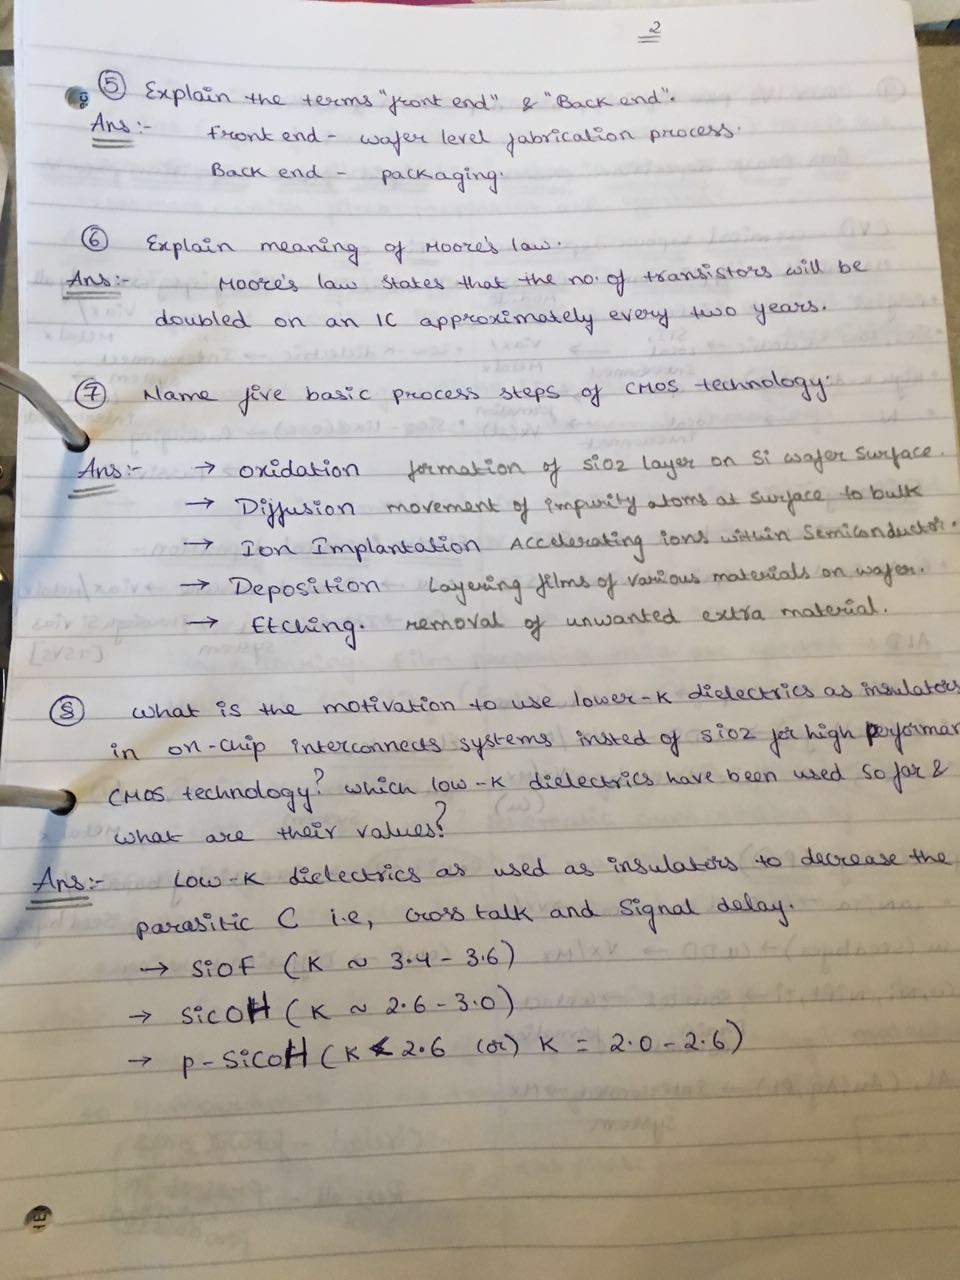 2
⑤ Explain the terms "front end" & "Back end".
Ans:- Front end - wafer level fabrication process.
Back end - packaging.
⑥ Explain meaning of Moore's law.
Ans:- Moore's law states that the no. of transistors will be
doubled on an IC approximately every two years.
⑦ Name five basic process steps of CMOS technology.
Ans:- → Oxidation formation of SiO2 layer on Si wafer surface.
→ Diffusion movement of impurity atoms at surface to bulk
→ Ion Implantation Accelerating ions within Semiconductor.
→ Deposition Layering films of various materials on wafer.
→ Etching. removal of unwanted extra material.
⑧ What is the motivation to use lower-K dielectrics as insulators
in on-chip interconnects systems insted of SiO2 for high performan
CMOS technology? which low-K dielectrics have been used so far &
what are their values?
Ans:- Low-K dielectrics as used as insulators to decrease the
parasitic C i.e, cross talk and Signal delay.
→ SiOF (K ~ 3.4 - 3.6)
→ SiCOH (K ~ 2.6 - 3.0)
→ p-SiCOH (K < 2.6 (or) K = 2.0 - 2.6)